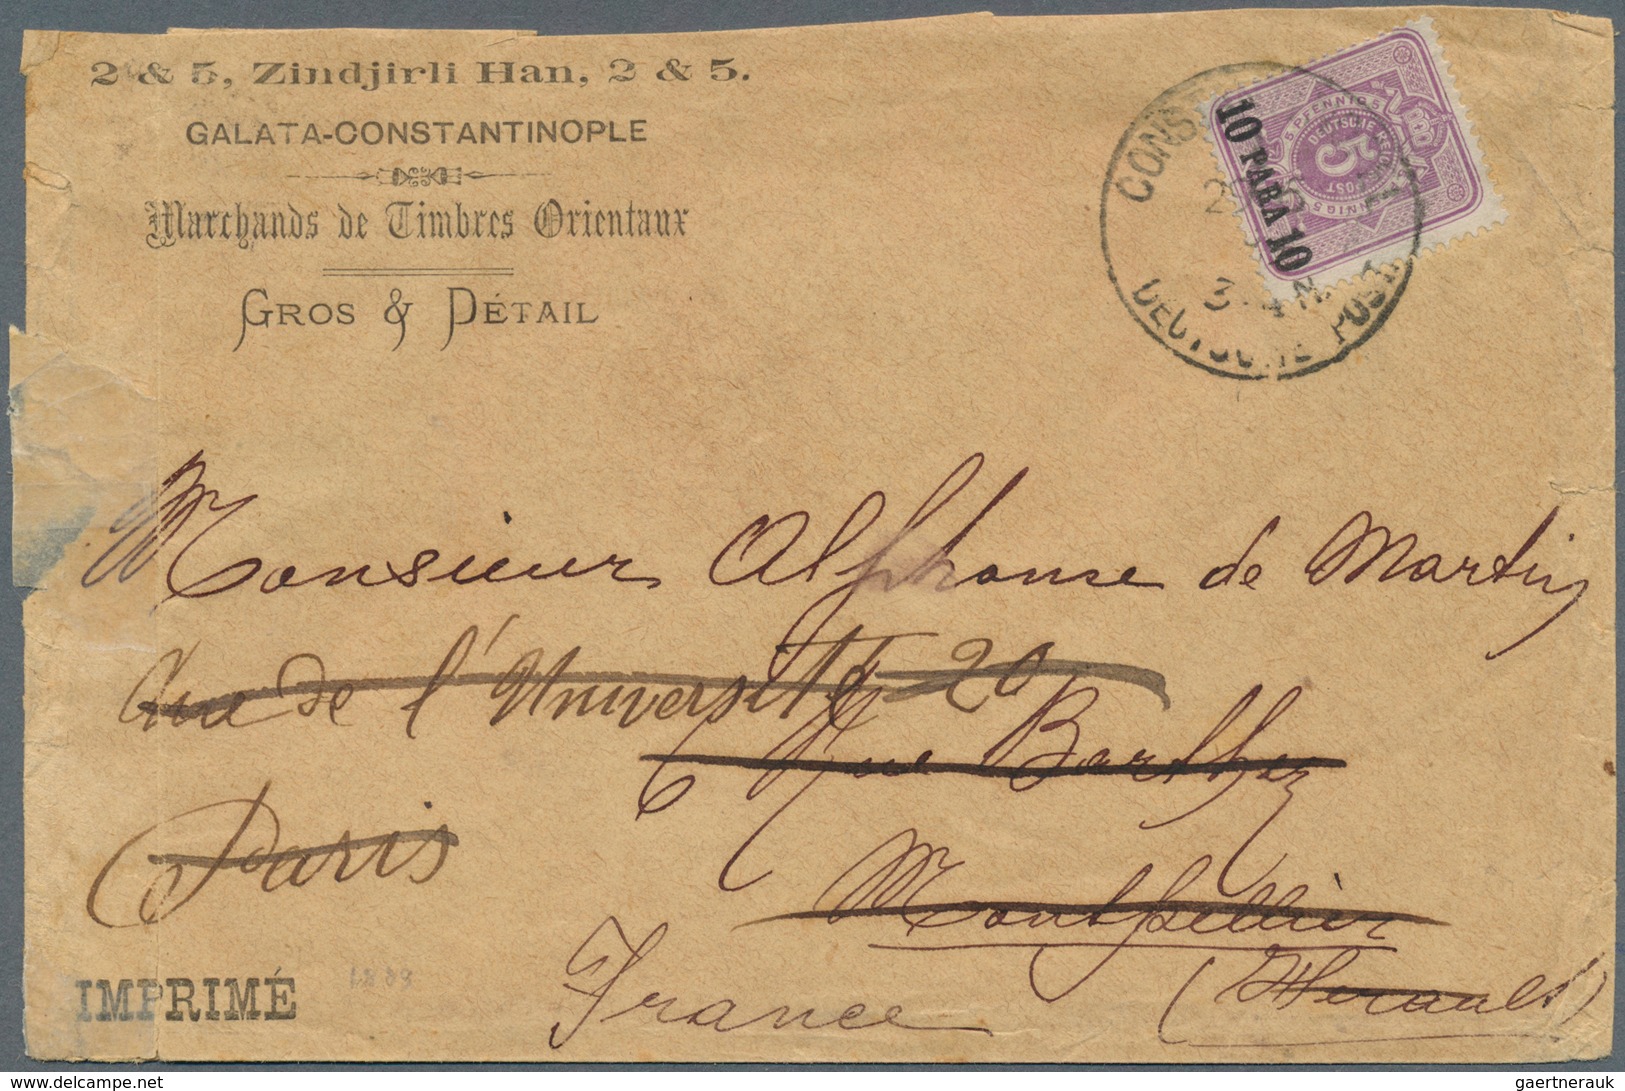 2 & 5, Zindjirli Han, 2 & 5.
GALATA-CONSTANTINOPLE
Marchands de Timbres Orientaux
GROS & DÉTAIL
5 PFENNIG 5
DEUTSCHE REICHS-POST
5
10 PARA 10
3-4 N.
DEUTSCHE POST.
Monsieur Alphonse de Martin
Rue de l'Université 20
Rue Barthez
Paris
Montpellier
(Herault)
France
IMPRIMÉ
1889
gaertnerauk
www.delcampe.net